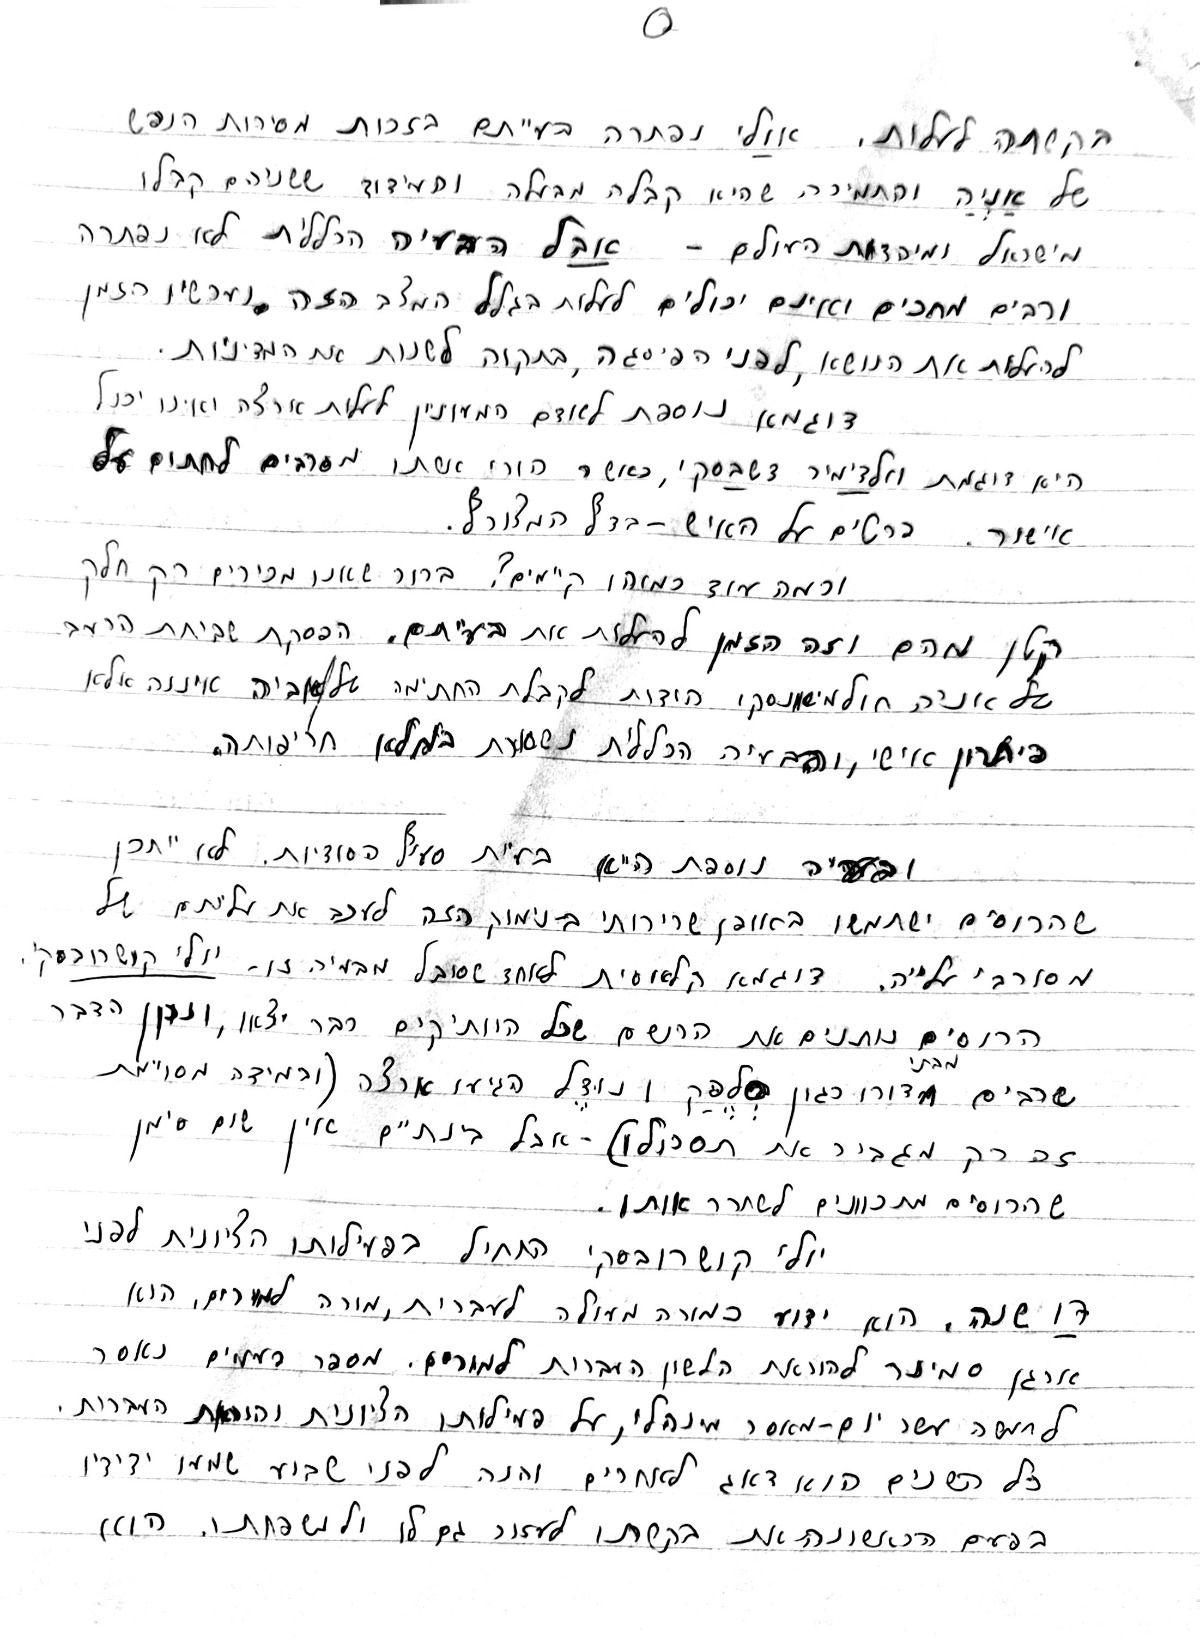 בקשתה לעלות. אולי נפתרה בעייתם בזכות מסירות הנפש
של אַנְיָה והתמיכה שהיא קבלה מבעלה והעידוד ששניהם קבלו
מישראל ומיהדות העולם – אבל הבעיה הכללית לא נפתרה
ורבים מחכים ואינם יכולים לעלות בגלל המצב הזה. ועכשיו הזמן
להעלות את הנושא, לפני הפיסגה, בתקוה לשנות את המדיניות.
דוגמא נוספת לאדם המעונין לעלות ארצה ואינו יכול
היא דוגמת ולדימיר דשבסקי, כאשר הורי אשתו מסרבים לחתום על
אישור. פרטים על האיש – בדף המצורף.
וכמה עוד כמוהו קיימים? ברור שאנו מכירים רק חלק
קטן מהם וזה הזמן להעלות את בעייתם. הפסקת שביתת הרעב
של אניה חולמיאנסקי הודות לקבלת החתימה של אביה איננה אלא
פיתרון אישי, והבעיה הכללית נשמעת במלוא חריפותה.
ובעיה נוספת היא בעית סעיף הסודיות. לא ייתכן
שהרוסים ישתמשו באופן שרירותי בנימוק הזה לעכב את עליתם של
מסורבי עלייה. דוגמא קלאסית לאחד שסובל מבעיה זו – יולי קושרובסקי.
הרוסים נותנים את הרושם שכל הוותיקים כבר יצאו, ונכון הדבר
שרבים מבני דורו כגון סְלֶפַּק ונוּדֶל הגיעו ארצה (ובמידה מסויימת
זה רק מגביר את תסכולו) – אבל בינתיים אין שום סימן
שהרוסים מתכוונים לשחרר אותו.
יולי קושרובסקי התחיל בפעילותו הציונית לפני
שנה. הוא ידוע כמורה מעולה לעברית, מורה למורים. הוא
ארגן סמינר להוראת הלשון העברית למורים. מספר פעמים נאסר
לחמשה עשר יום – מאסר מינהלי, על פעילותו הציונית והוראת העברית.
כל השנים הוא דאג לאחרים והנה לפני שבוע שמעו ידידיו
בפעם הראשונה את בקשתו לעזור גם לו ולמשפחתו. הוא